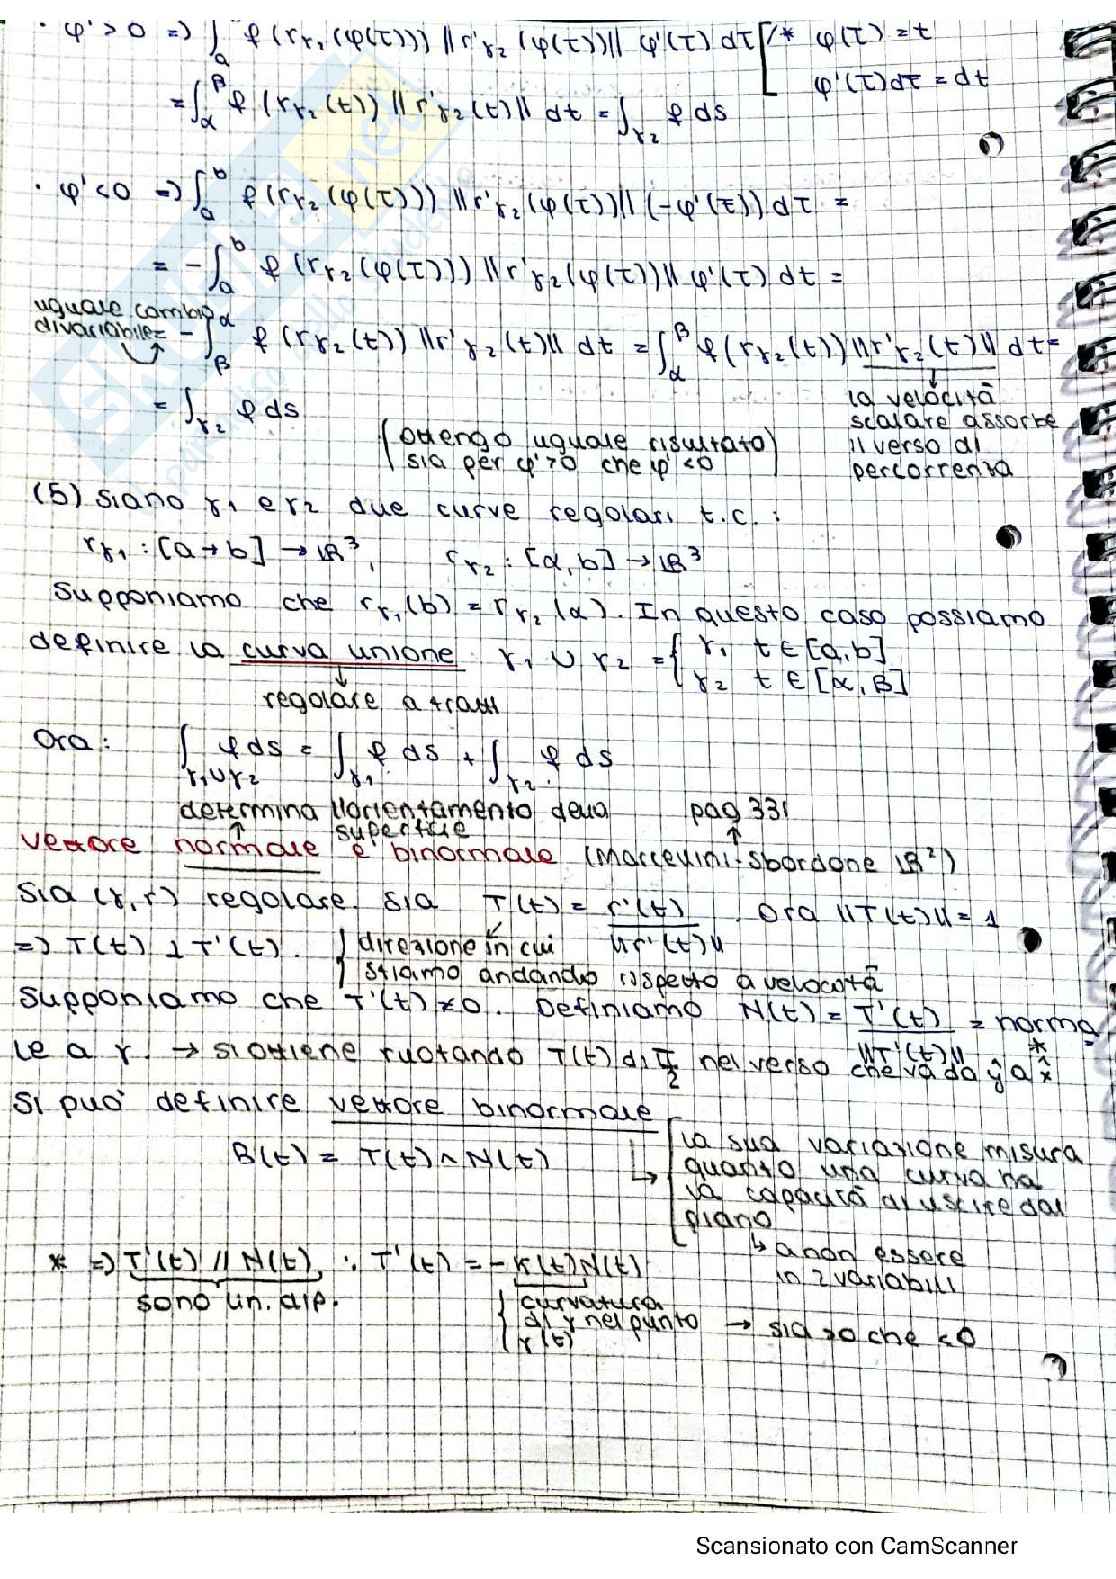 · φ' > 0 => ∫_a f (r_γ₂ (φ(τ))) ||r'_γ₂ (φ(τ))|| φ'(τ) dτ [/* φ(τ) = t
φ'(τ)dτ = dt
= ∫_α^β f (r_γ₂ (t)) ||r'_γ₂ (t)|| dt = ∫_γ₂ f ds
· φ' < 0 => ∫_a^b f (r_γ₂ (φ(τ))) ||r'_γ₂ (φ(τ))|| (-φ'(τ)) dτ =
= - ∫_a^b f (r_γ₂ (φ(τ))) ||r'_γ₂ (φ(τ))|| φ'(τ) dτ =
uguale cambio
di variabile = - ∫_β^α f (r_γ₂ (t)) ||r'_γ₂ (t)|| dt = ∫_α^β f (r_γ₂ (t)) ||r'_γ₂ (t)|| dt =
= ∫_γ₂ f ds
la velocità
scalare assorbe
il verso di
percorrenza
(ottengo uguale risultato)
sia per φ' > 0 che φ' < 0
(5) siano γ₁ e γ₂ due curve regolari t.c. :
r_γ₁ : [a → b] → ℝ³, r_γ₂ : [α, b] → ℝ³
Supponiamo che r_γ₁ (b) = r_γ₂ (α). In questo caso possiamo
definire la curva unione γ₁ ∪ γ₂ = { γ₁ t ∈ [a, b]
γ₂ t ∈ [α, β]
regolare a tratti
Ora: ∫_γ₁∪γ₂ f ds = ∫_γ₁ f ds + ∫_γ₂ f ds
determina l'orientamento della pag 331
superficie
vettore normale e binormale (Marcellini-Sbordone ℝ²)
Sia (γ, r) regolare. Sia T(t) = r'(t) / ||r'(t)|| . Ora ||T(t)|| = 1
=> T(t) ⊥ T'(t). { direzione in cui
stiamo andando rispetto a velocità
Supponiamo che T'(t) ≠ 0. Definiamo N(t) = T'(t) / ||T'(t)|| = norma
le a γ. → si ottiene ruotando T(t) di π/2 nel verso che va da ŷ a x̂ *
Si può definire vettore binormale
B(t) = T(t) ∧ N(t)
la sua variazione misura
quanto una curva ha
la capacità di uscire dal
piano
↳ a non essere
in 2 variabili
* => T'(t) // N(t), ∴ T'(t) = - k(t) N(t)
sono lin. dip.
curvatura
di γ nel punto → sia > 0 che < 0
r(t)
Scansionato con CamScanner